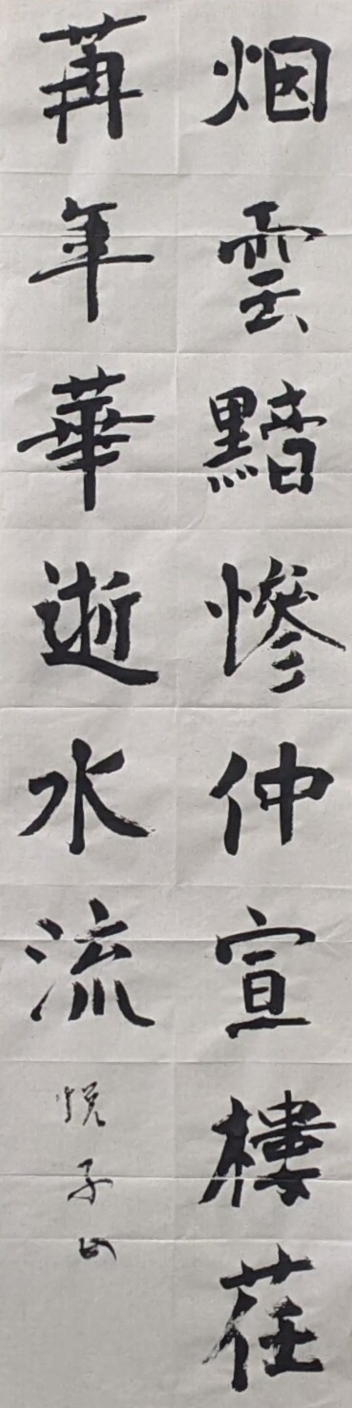 烟雲黯慘仲宣樓荏
苒年華逝水流
悦子